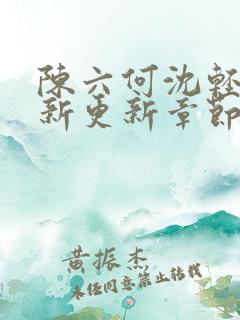 陳六何沈輕
新更新章節
黄振杰
未经同意禁止转载